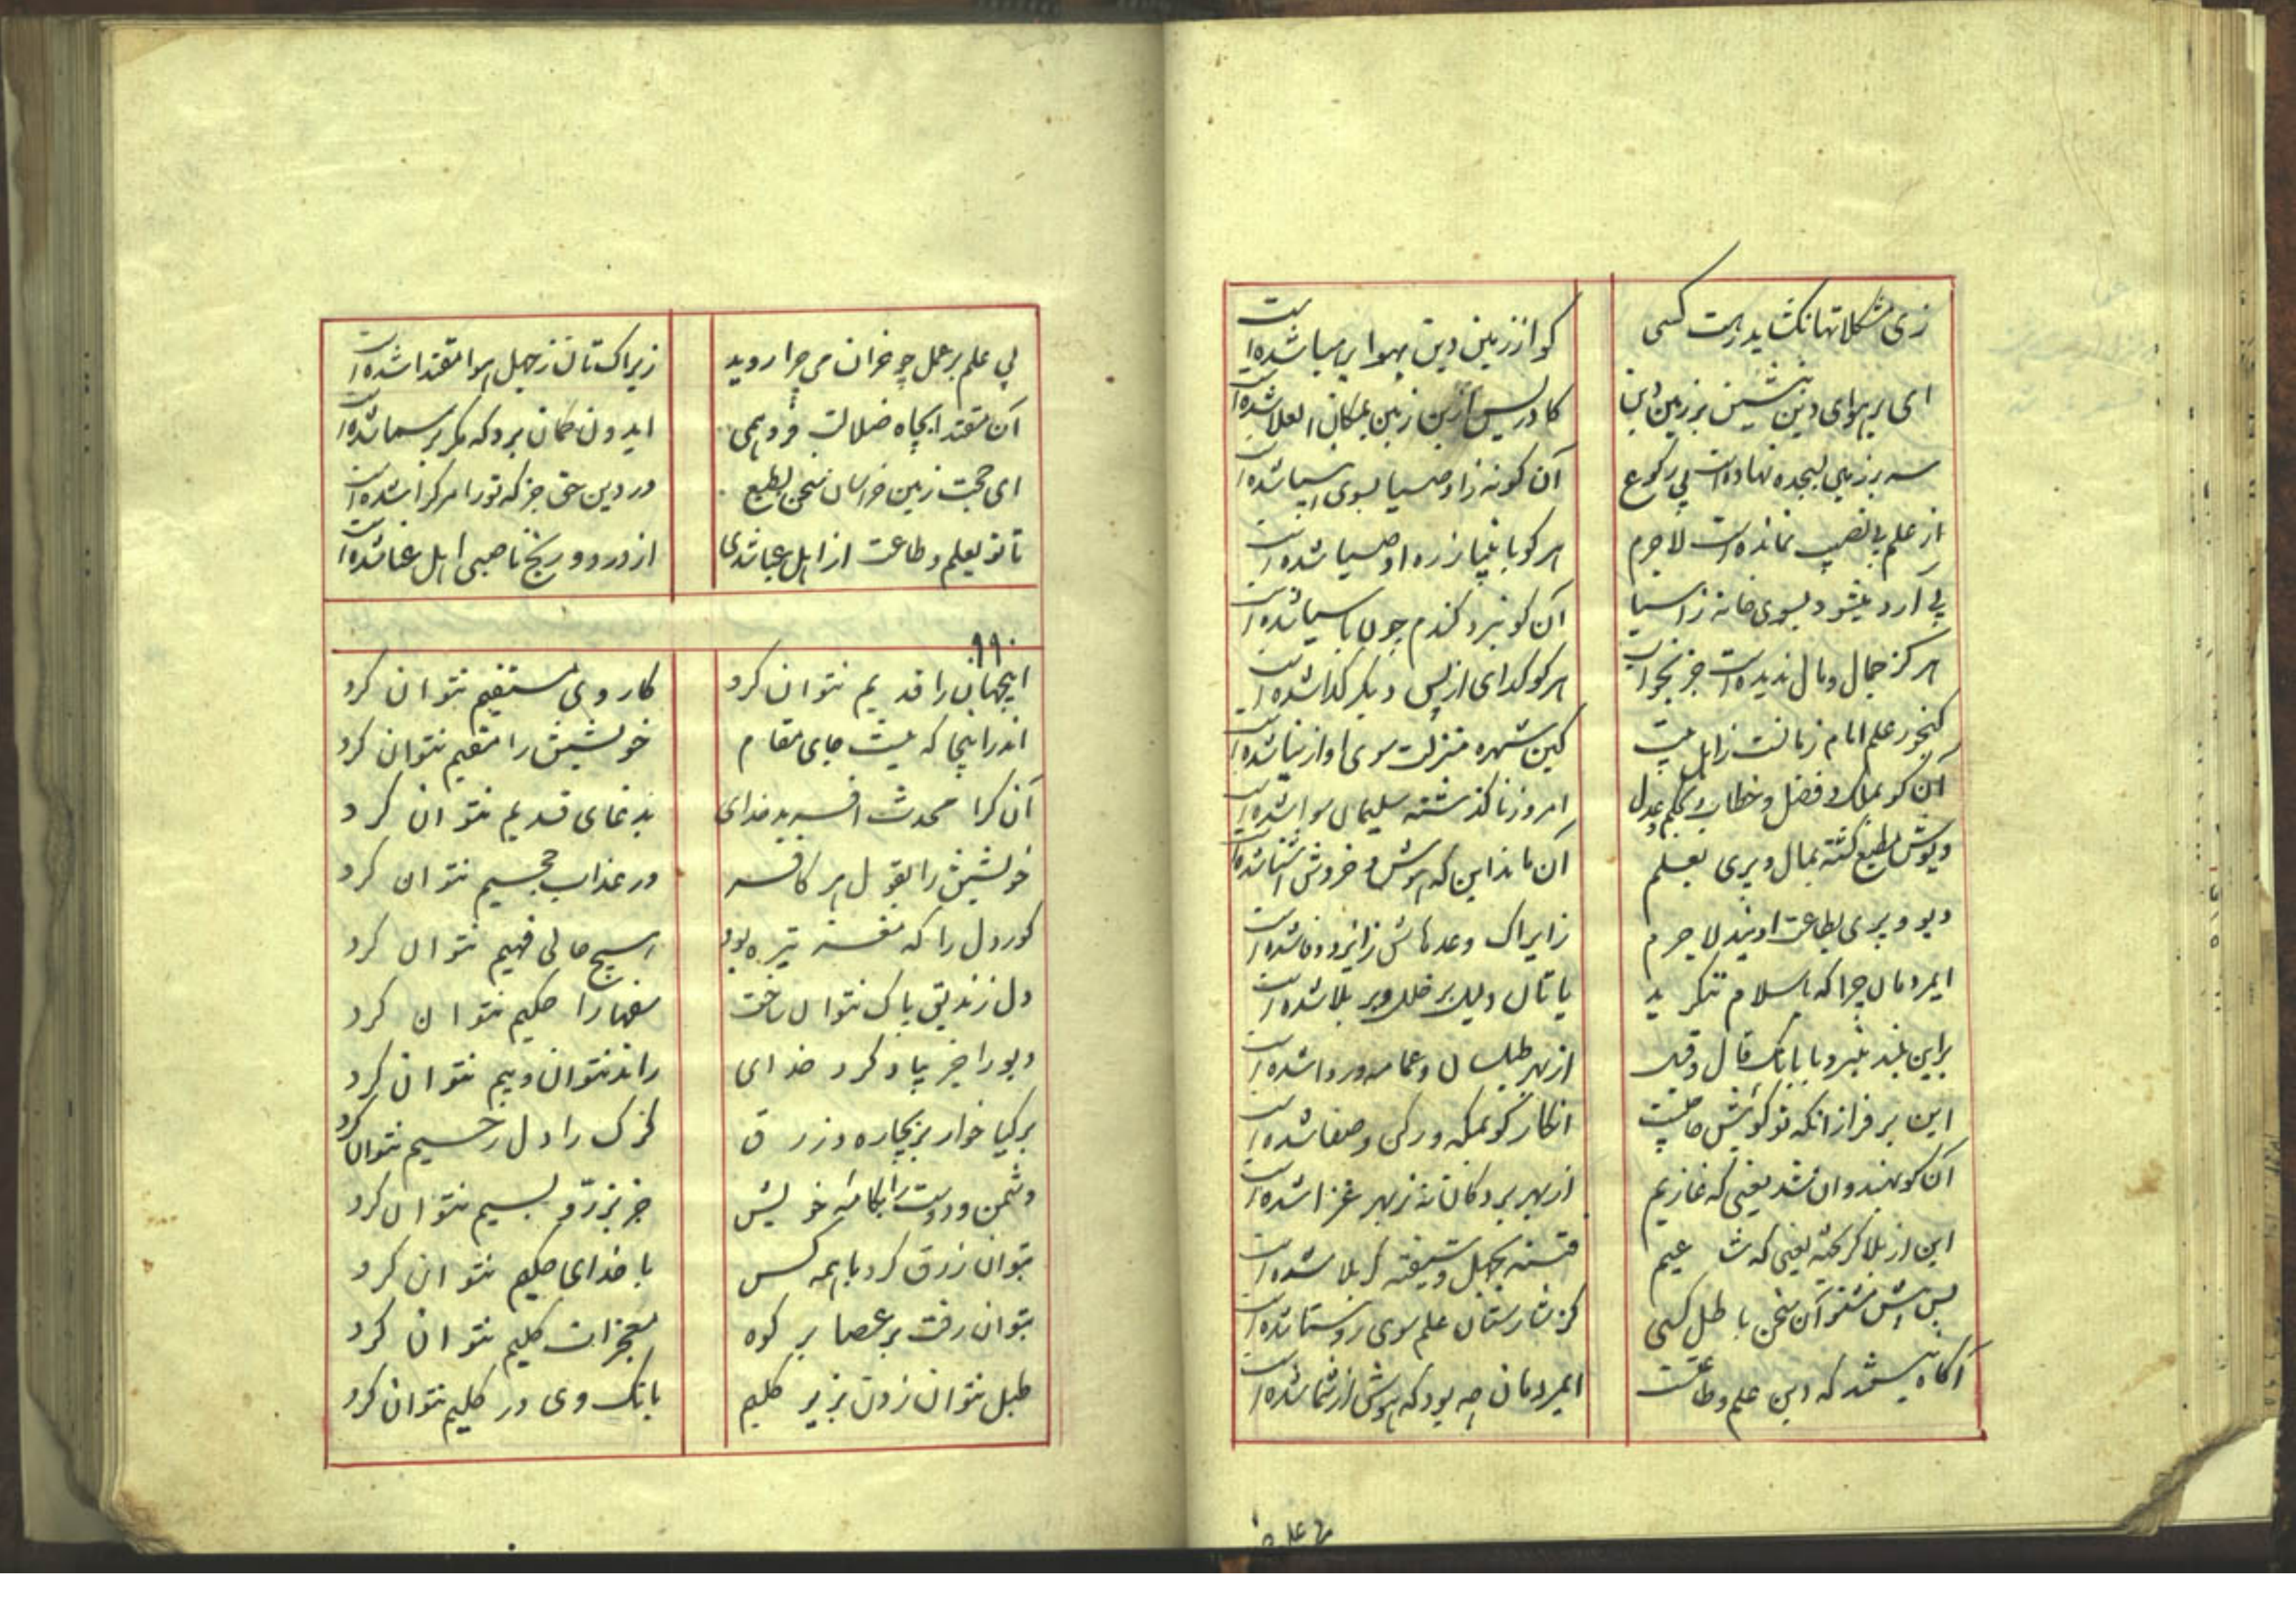 زی مشکلاتها نگشاید رهت کسی
کو از زمین دین بهوا بر هبا شده است
ای بر هوای دین بنشین بر زمین دین
کادریس ازین زمین بمکان العلا شده است
سر بر زمین بسجده نهاده است بی رکوع
آن کو نه زاوصیا بسوی انبیا شده است
از علم بی نصیب نمانده است لاجرم
هر کو بانبیا ز ره اوصیا شده است
بی آرد میشود بسوی خانه ز آسیا
آن کو نبرد گندم چون بآسیا شده است
هرگز جمال و مال ندیده است جز بخواب
هر کو گدای از پس دیگر گدا شده است
گنجور علم امام زمانست زاهل بیت
کین شهره منزلت سوی او از نیا شده است
آن کو بملک و فضل و خطاب و بحکم و عدل
امروز نا گذشته سلیمان سوا شده است
دیوش مطیع گشته بمال و پری بعلم
آن ماند این که هوش و خروش آشنا شده است
دیو و پری بطاعت اویند لاجرم
زایراک وعدهاش ز ایزد وفا شده است
ایمردمان چرا که باسلام ننگرید
یا تان دلیل بر خلل و بر بلا شده است
براین بلند منبر و با بانگ قال و قیل
از بهر طیلسان و عمامه وردا شده است
این سر فراز آنکه تو گوئیش حاجیست
انکار گو بمکه و رکن و صفا شده است
آن کو بهندوان شد یعنی که غازیم
از بهر بردگان نه ز بهر غزا شده است
این از بلا گریخته یعنی که شاعیم
فتنه بجهل و شیفته کربلا شده است
بس پیش مشنو آن سخن باطل کسی
کز شارستان علم سوی روستا شده است
آگاه نیستند که دین علم و طاعت
ایمردمان چه بود که هوش از شما شده است
بی علم بر عمل چو خران می چرا روید
زیراک تان ز جهل هوا مقتدا شده است
آن مقتدا بچاه ضلالت فرو همی
ایدون گمان برد که مگر بر سما شده است
ای حجت زمین خراسان سخن بطبع
در دین حق جز که تو را مر کرا شده است
تا تو بعلم و طاعت از اهل عبا شدی
از درد و رنج ناصبی اهل عنا شده است
۱۱۰
اینجهان را قدیم نتوان کرد
کار وی مستقیم نتوان کرد
اندر اینجا که نیست جای مقام
خویشتن را مقیم نتوان کرد
آن کرا محدث آفرید خدای
بدغای قدیم نتوان کرد
خویشتن را بقول هر کافر
در عذاب جحیم نتوان کرد
کور دل را که مغز تیره بود
هیچ حالی فهیم نتوان کرد
دل زندیق پاک نتوان ساخت
سفها را حکیم نتوان کرد
دیو را خیر یاد کرد خدای
راند نتوان و بیم نتوان کرد
بر گیا خوار بر بیچاره و زرق
گرگ را دل رحیم نتوان کرد
دشمن و دوست را بکامه خویش
جز بزر و بسیم نتوان کرد
بتوان زرق کرد با همه کس
با خدای حکیم نتوان کرد
بتوان رفت بر عصا بر کوه
معجزات کلیم نتوان کرد
طبل نتوان زدن بزیر گلیم
بانگ وی در گلیم نتوان کرد
بی علم